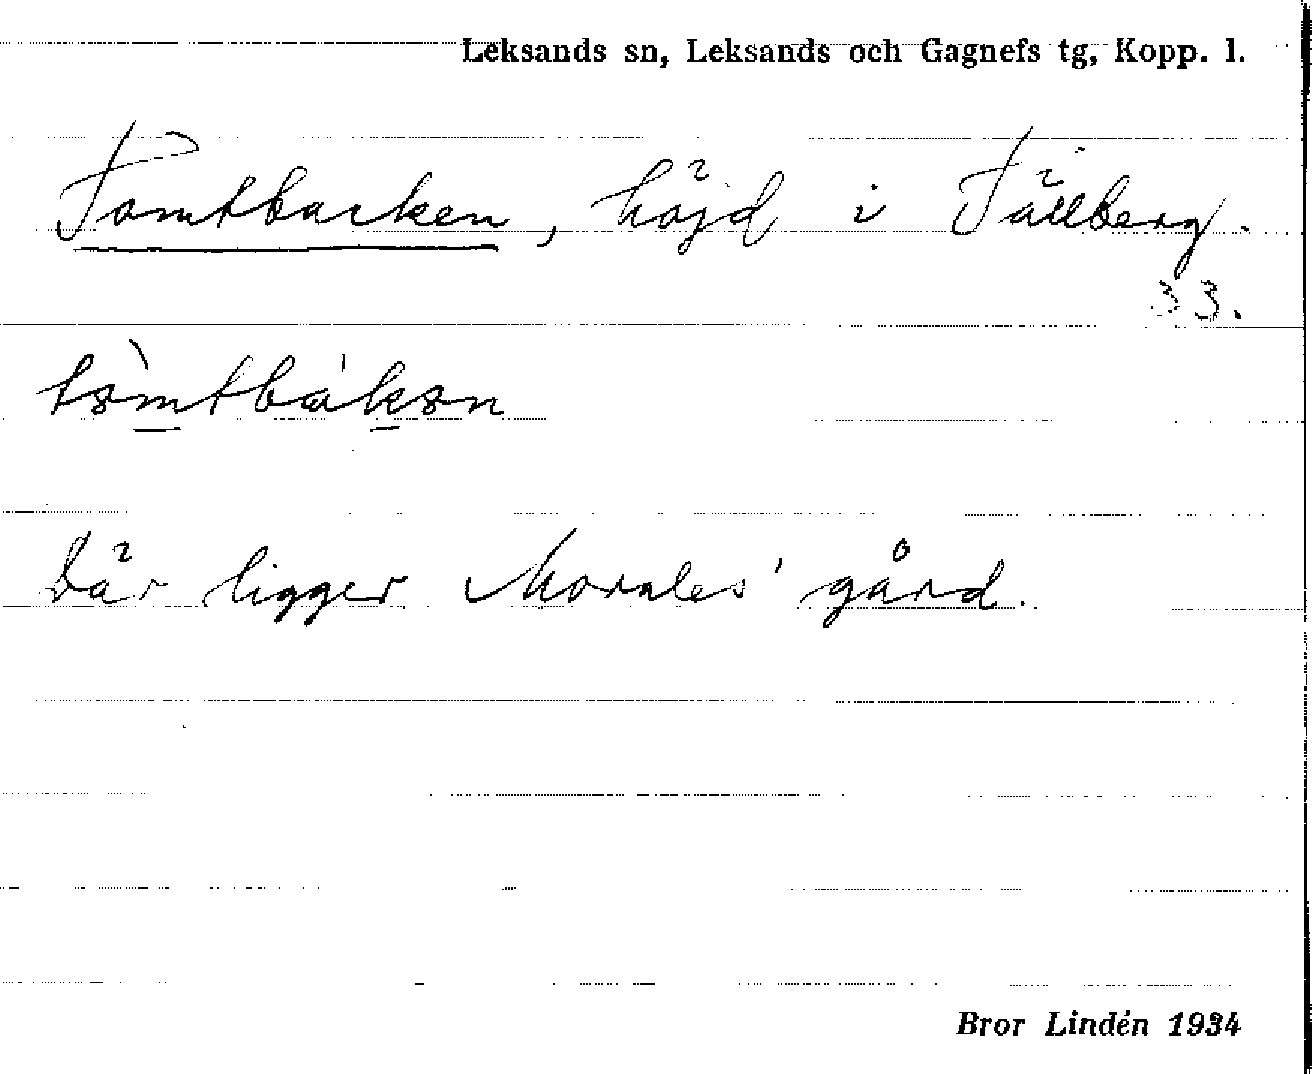 Leksands sn, Leksands och Gagnefs tg, Kopp. l.
Tomtbacken, höjd i Tällberg.
33.
Där ligger Morales' gård.
Bror Lindén 1934